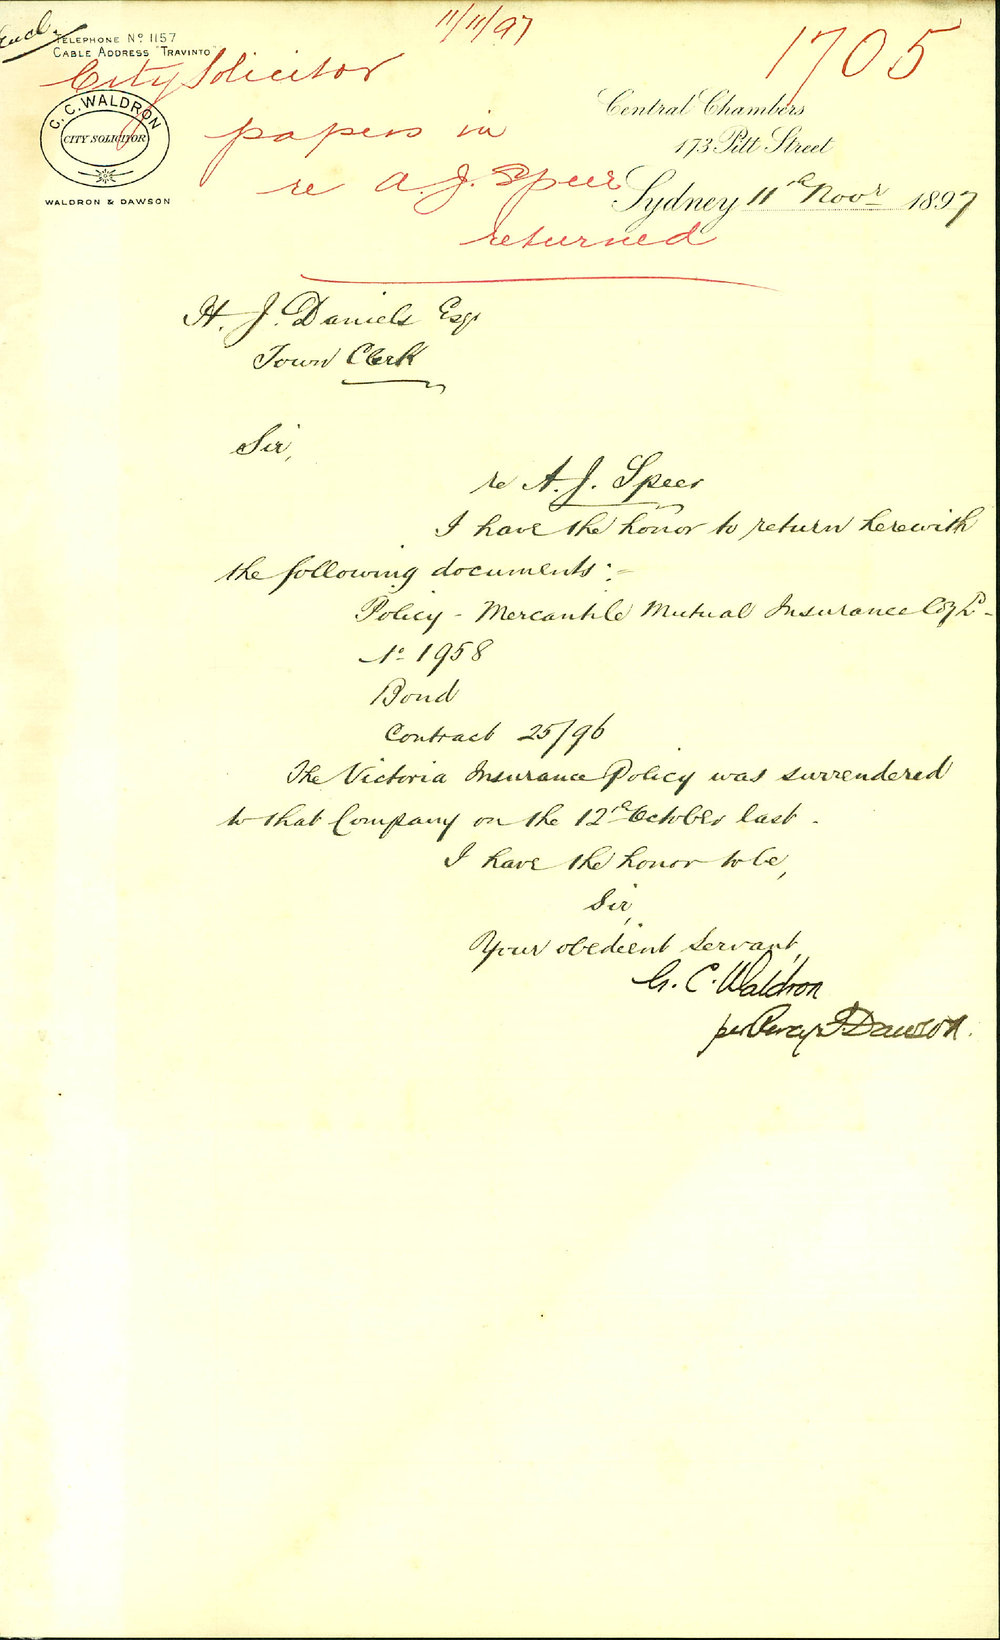 11/11/97
Encl.
TELEPHONE No 1157
CABLE ADDRESS "TRAVINTO"
1705
City Solicitor
papers in
re A. J. Speer
returned
C. C. WALDRON
CITY SOLICITOR
WALDRON & DAWSON
Central Chambers
173 Pitt Street
Sydney 11th Novr 1897
H. J. Daniels Esqr
Town Clerk
Sir,
re A. J. Speer
I have the honor to return herewith
the following documents:-
Policy - Mercantile Mutual Insurance Coy Ld -
No 1958
Bond
Contract 25/96
The Victoria Insurance Policy was surrendered
to that Company on the 12th October last.
I have the honor to be,
Sir,
Your obedient servant,
G. C. Waldron
per Percy J Dawson.